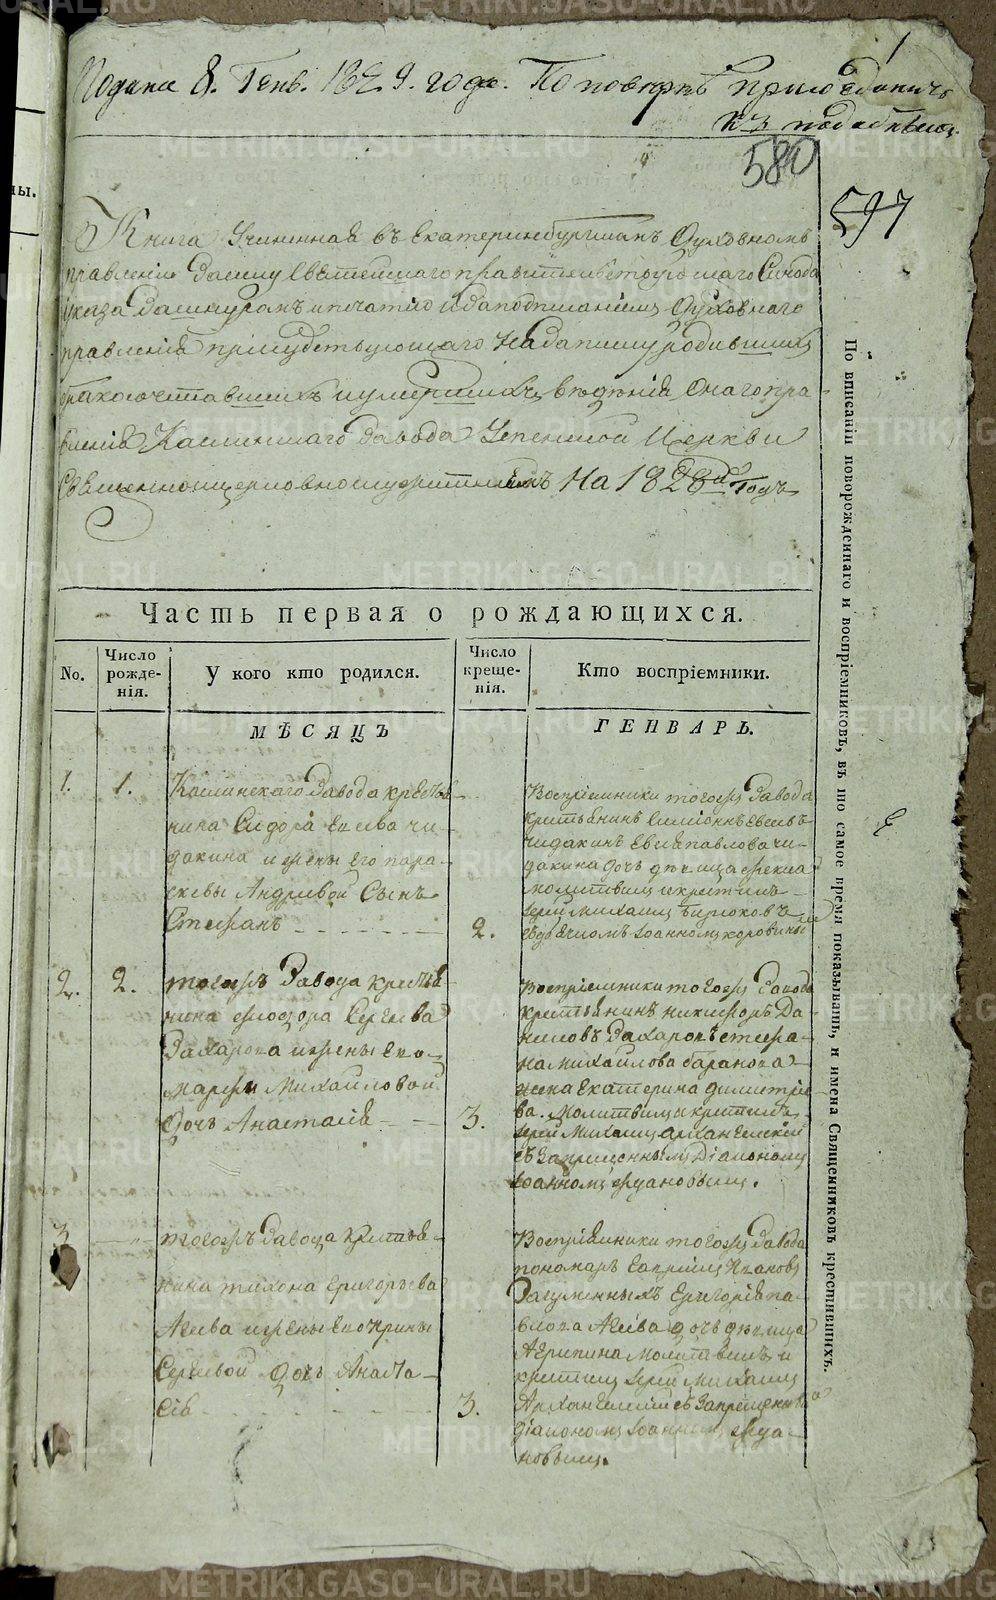 1
Подана 8. Генв. 1829. года. По поверкѣ приобщить
къ подобнымъ.
580
597
ны.
Книга Учиненная въ Екатеринбургскомъ Духовномъ
правленіи
Правительствующаго Синода
указа за шнуромъ и печатію и за подписаніемъ Духовнаго
правленія присудствующаго На записку родившихся
бракосочетавшихъ и умершихъ, вѣдѣнія Онаго пра-
вленія Каслинскаго Завода Успенской Церкви
Священноцерковнослужителямъ На 1828й Годъ
Часть первая о рождающихся.
No.
Число рожде-нія.
У кого кто родился.
Число креще-нія.
Кто воспріемники.
МѢСЯЦЪ
ГЕНВАРЬ.
1.
1.
Каслинскаго Завода крестья-
нина Сидора Евсева чи-
дакина и жены Его пара-
скевы Андреевой Сынъ
Стефанъ
2.
Воспріемники тогожъ Завода
крестьянинъ Симіонъ Евсевъ
чидакинъ Евсея павлова чи-
дакина дочь дѣвица
молитвилъ и крестилъ
Іерей Михаилъ Бирюковъ
Іоанномъ коровинымъ
2.
2.
тогожъ Завода крестья-
нина Феодора Сергеева
Захарова и жены Его
марфы Михайловой
Дочь Анастасія
3.
Воспріемники тогожъ Завода
крестьянинъ никифоръ Да-
ниловъ Захаровъ стефа-
на михайлова баранова
жена Екатерина димитріе-
ва. молитвилъ и крестилъ
Іерей Михаилъ Архангельскій
съ Запрещеннымъ Діакономъ
Іоанномъ Фдановымъ.
3
тогожъ Завода крестья-
нина тихона григорьева
Агеева и жены Его Ирины
Сергеевой дочь Анаста-
сія
3.
Воспріемники тогожъ Завода
пономарь Гавриилъ Ивановъ
Загуменныхъ Григорія па-
влова Агеева дочь дѣвица
Агрипина Молитвилъ и
крестилъ Іерей Михаилъ
Архангельскій съ Запрещеннымъ
діакономъ Іоанномъ Фда-
новымъ.
По вписаніи новорожденнаго и воспріемниковъ, въ то самое время показывать, и имена Священниковъ крестившихъ.
METRIKI.GASO-URAL.RU